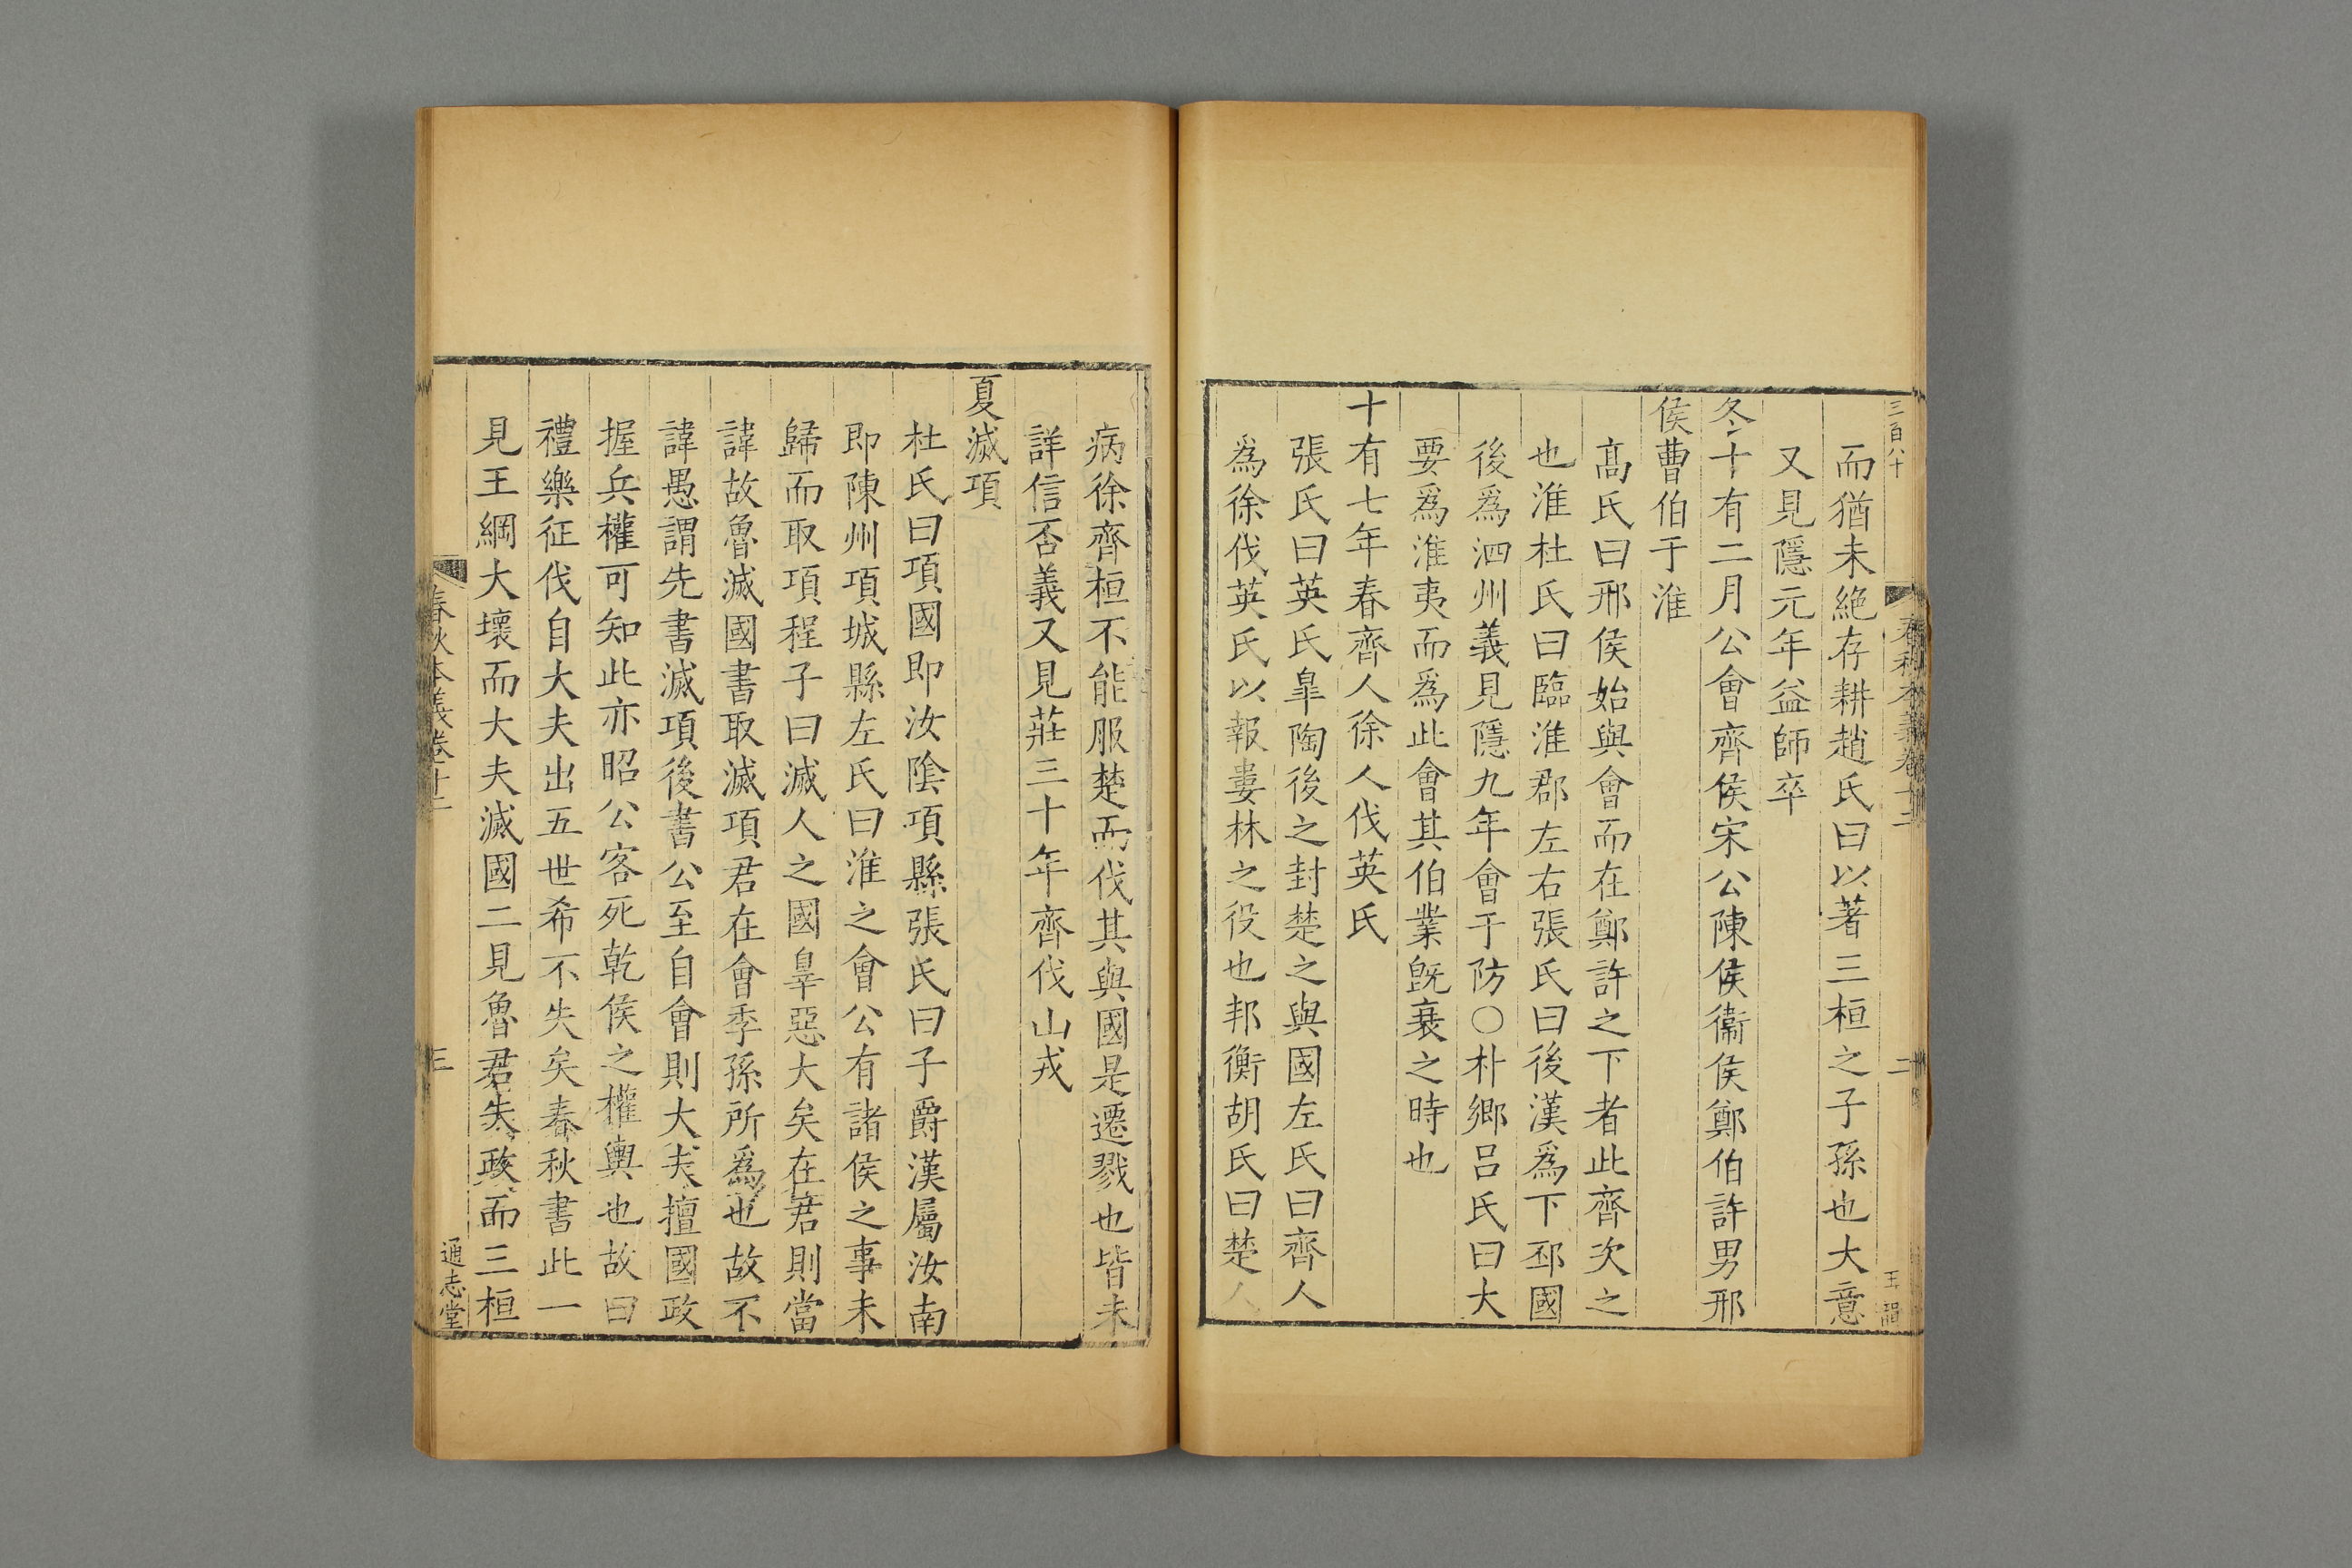 三百八十
春秋本義卷十二
二
王
而猶未絕存耕趙氏曰以著三桓之子孫也大意
又見隱元年益師卒
冬十有二月公會齊侯宋公陳侯衞侯鄭伯許男邢
侯曹伯于淮
髙氏曰邢侯始與會而在鄭許之下者此齊次之
也淮杜氏曰臨淮郡左右張氏曰後漢爲下邳國
後爲泗州義見隱九年會于防○朴鄉呂氏曰大
要爲淮夷而爲此會其伯業旣衰之時也
十有七年春齊人徐人伐英氏
張氏曰英氏臯陶後之封楚之與國左氏曰齊人
爲徐伐英氏以報婁林之役也邦衡胡氏曰楚人
病徐齊桓不能服楚而伐其與國是遷戮也皆未
詳信否義又見莊三十年齊伐山戎
夏滅項
杜氏曰項國即汝隂項縣張氏曰子爵漢屬汝南
即陳州項城縣左氏曰淮之會公有諸侯之事未
歸而取項程子曰滅人之國辠惡大矣在君則當
諱故魯滅國書取滅項君在會季孫所爲也故不
諱愚謂先書滅項後書公至自會則大夫擅國政
握兵權可知此亦昭公客死乾侯之權輿也故曰
禮樂征伐自大夫出五世希不失矣春秋書此一
見王綱大壞而大夫滅國二見魯君失政而三桓
春秋本義卷十二
三
通志堂